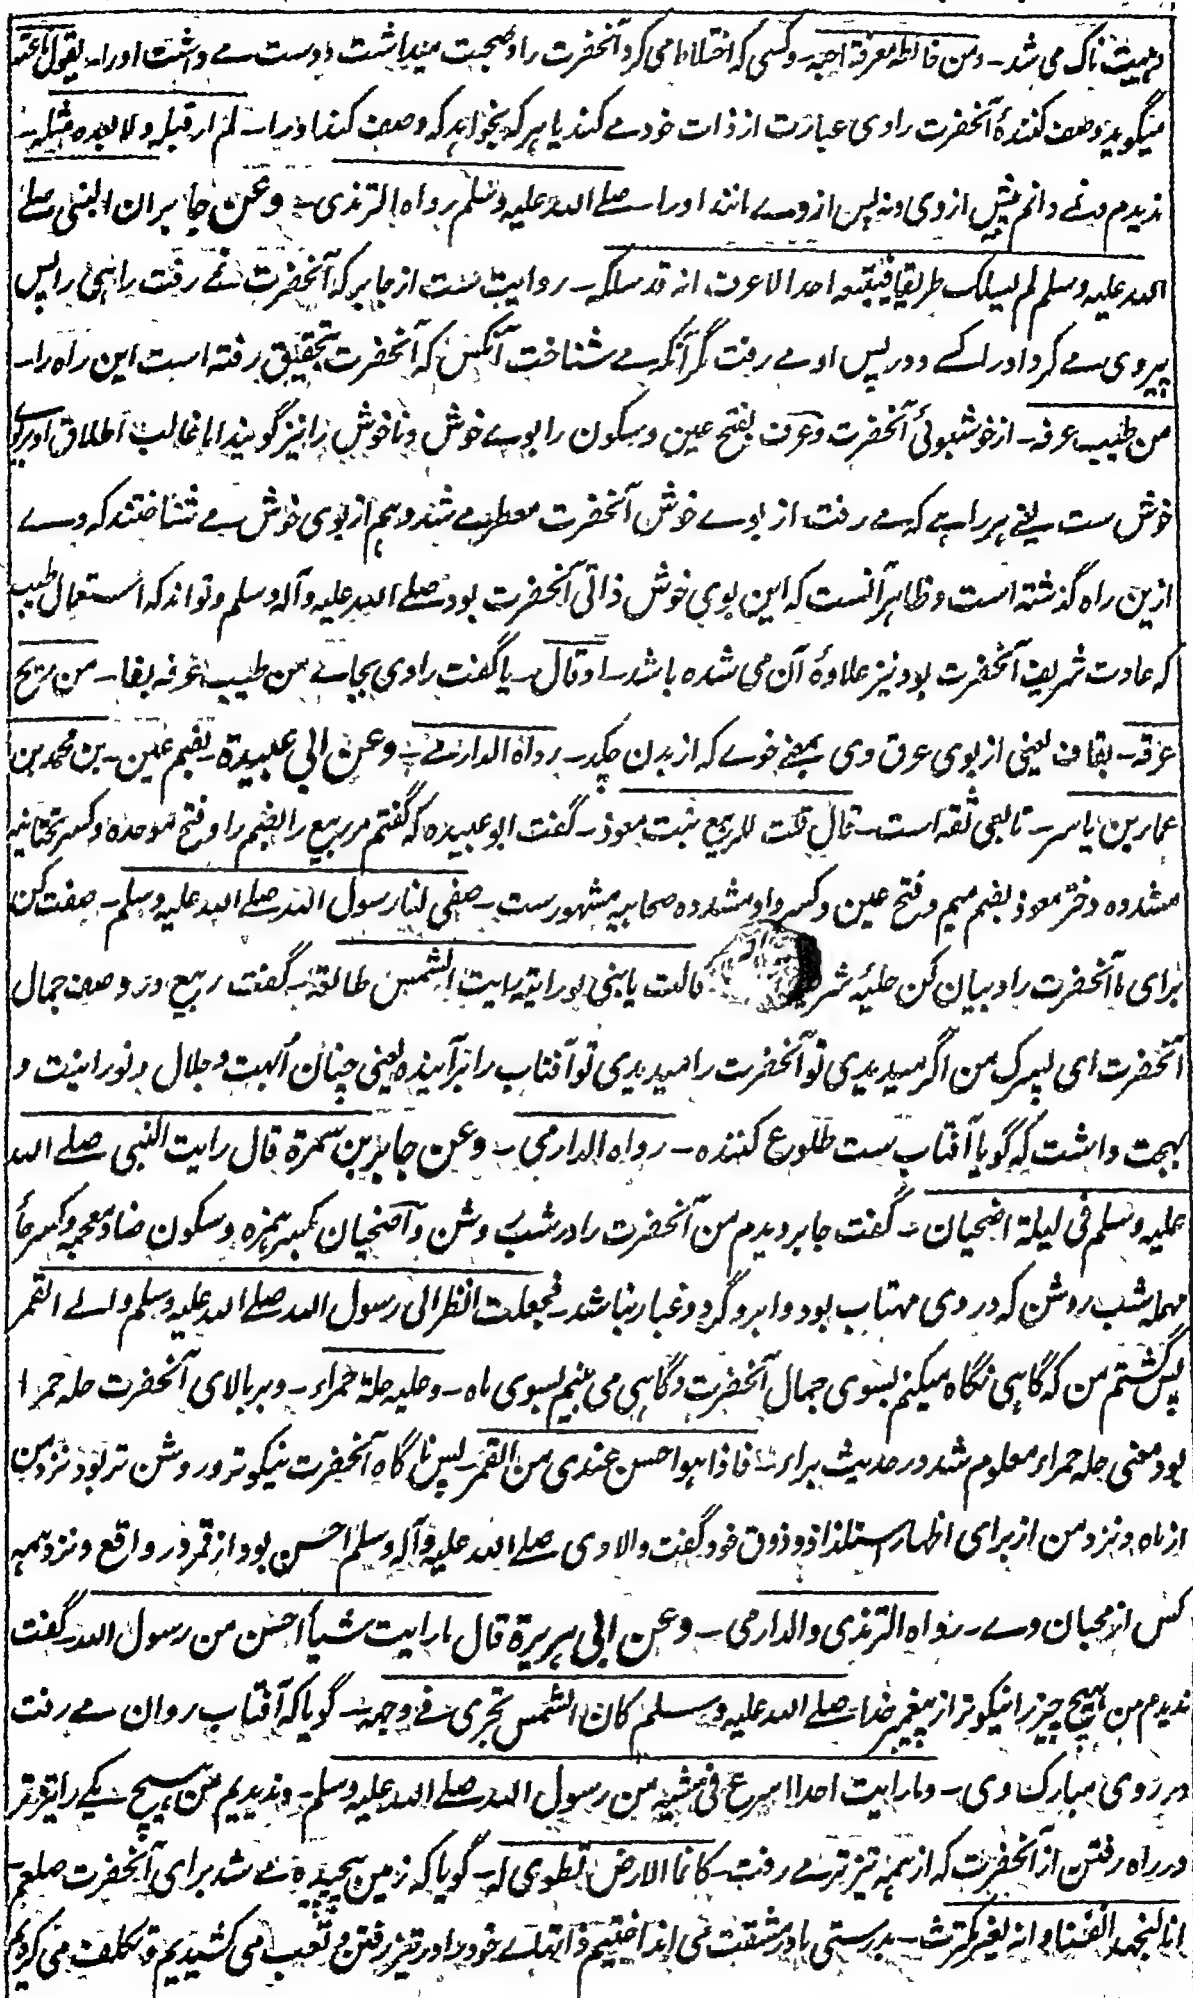 و هیبت ناک می شد۔ ومن خالطه معرفة احبه۔ وکسی که اختلاط می کرد آنحضرت را و صحبت میداشت دوست می داشت اورا۔ یقول ناعته
میگوید وصف کنندهٔ آنحضرت راوی عبارت از ذات خود می کند یا هر که بخواهد که وصف کند او را۔ لم ار قبله ولا بعده مثله۔
ندیدم ونمی دانم پیش از وی ونه پس از وے مانند اورا صلے الله علیه وسلم رواه الترمذی۔ وعن جابر ان النبی صلے
الله علیه وسلم لم یسلک طریقا فیتبعه احد الا عرف انه قد سلکه۔ روایت ست از جابر که آنحضرت نمے رفت راهی را پس
پیروی مے کرد اورا کسے و در پس او مے رفت مگر آنکه مے شناخت آنکس که آنحضرت بتحقیق رفته است این راه را۔
من طیب عرفه۔ از خوشبوئی آنحضرت وعرف بفتح عین وسکون را بوے خوش وناخوش را نیز گویند اما غالب اطلاق او بر بوے
خوش ست یعنے هر راهے که مے رفت از بوے خوش آنحضرت معطر مے شد وهم از بوی خوش مے شناختند که وے
ازین راه گذشته است وظاهر آنست که این بوی خوش ذاتی آنحضرت بود صلے الله علیه وآله وسلم وتواند که استعمال طیب
که عادت شریف آنحضرت بود نیز علاوهٔ آن می شده باشد۔ او قال۔ یا گفت راوی بجاے من طیب عرفه بفا۔ من ریح
عرقه۔ بقاف یعنی از بوی عرق وی بمعنے خوے که از بدن چکد۔ رواه الدارمے۔ وعن ابی عبیدة۔ بضم عین۔ بن محمد بن
عمار بن یاسر۔ تابعی ثقه است۔ قال قلت للربیع بنت معوذ۔ گفت ابو عبیده که گفتم مر ربیع را بضم را وفتح موحده وکسر تحتانیه
مشدده دختر معوذ بضم میم وفتح عین وکسر واو مشدده صحابیه مشهورست۔ صفی لنا رسول الله صلے الله علیه وسلم۔ صفت کن
برای ما آنحضرت را وبیان کن حلیهٔ قالت یا بنی لو رایته رایت الشمس طالعة۔ گفت ربیع در وصف جمال
آنحضرت ای پسرک من اگر میدیدی تو آنحضرت را میدیدی تو آفتاب را برآینده یعنی چنان ابهت وجلال ونورانیت و
بهجت داشت که گویا آفتاب ست طلوع کننده۔ رواه الدارمی۔ وعن جابر بن سمرة قال رایت النبی صلے الله
علیه وسلم فی لیلة اضحیان۔ گفت جابر دیدم من آنحضرت را در شب روشن واضحیان بکسر همزه وسکون ضاد معجمه وکسر حاء
مهمله شب روشن که در وی مهتاب بود وابر وگرد وغبار نباشد۔ فجعلت انظر الی رسول الله صلے الله علیه وسلم والے القمر
پس گشتم من که گاهی نگاه میکنم بسوی جمال آنحضرت وگاهی می بینم بسوی ماه۔ وعلیه حلة حمراء۔ وبر بالای آنحضرت حله حمرا
بود معنی حله حمراء معلوم شد در حدیث براء۔ فاذا هو احسن عندی من القمر۔ پس ناگاه آنحضرت نیکوتر وروشن تر بود نزد من
از ماه ونزد من از برای اظهار استلذاذ وذوق خود گفت والا وی صلے الله علیه وآله وسلم احسن بود از قمر در واقع ونزد همه
کس از محبان وے۔ رواه الترمذی والدارمی۔ وعن ابی هریرة قال ما رایت شیأ احسن من رسول الله۔ گفت
ندیدم من هیچ چیز را نیکوتر از پیغمبر خدا صلے الله علیه وسلم کان الشمس تجری فے وجهه۔ گویا که آفتاب روان مے رفت
در روی مبارک وی۔ وما رایت احدا اسرع فی مشیه من رسول الله صلے الله علیه وسلم۔ وندیدیم من هیچ یکے را تیزتر
در راه رفتن از آنحضرت که از همه تیزتر مے رفت۔ کانما الارض تطوی له۔ گویا که زمین پیچیده مے شد برای آنحضرت صلعم
انا لنجهد انفسنا وانه لغیر مکترث۔ بدرستی ما در مشقت می انداختیم ذاتهاے خود را در تیز رفتن وتعب می کشیدیم وتکلف می کردیم